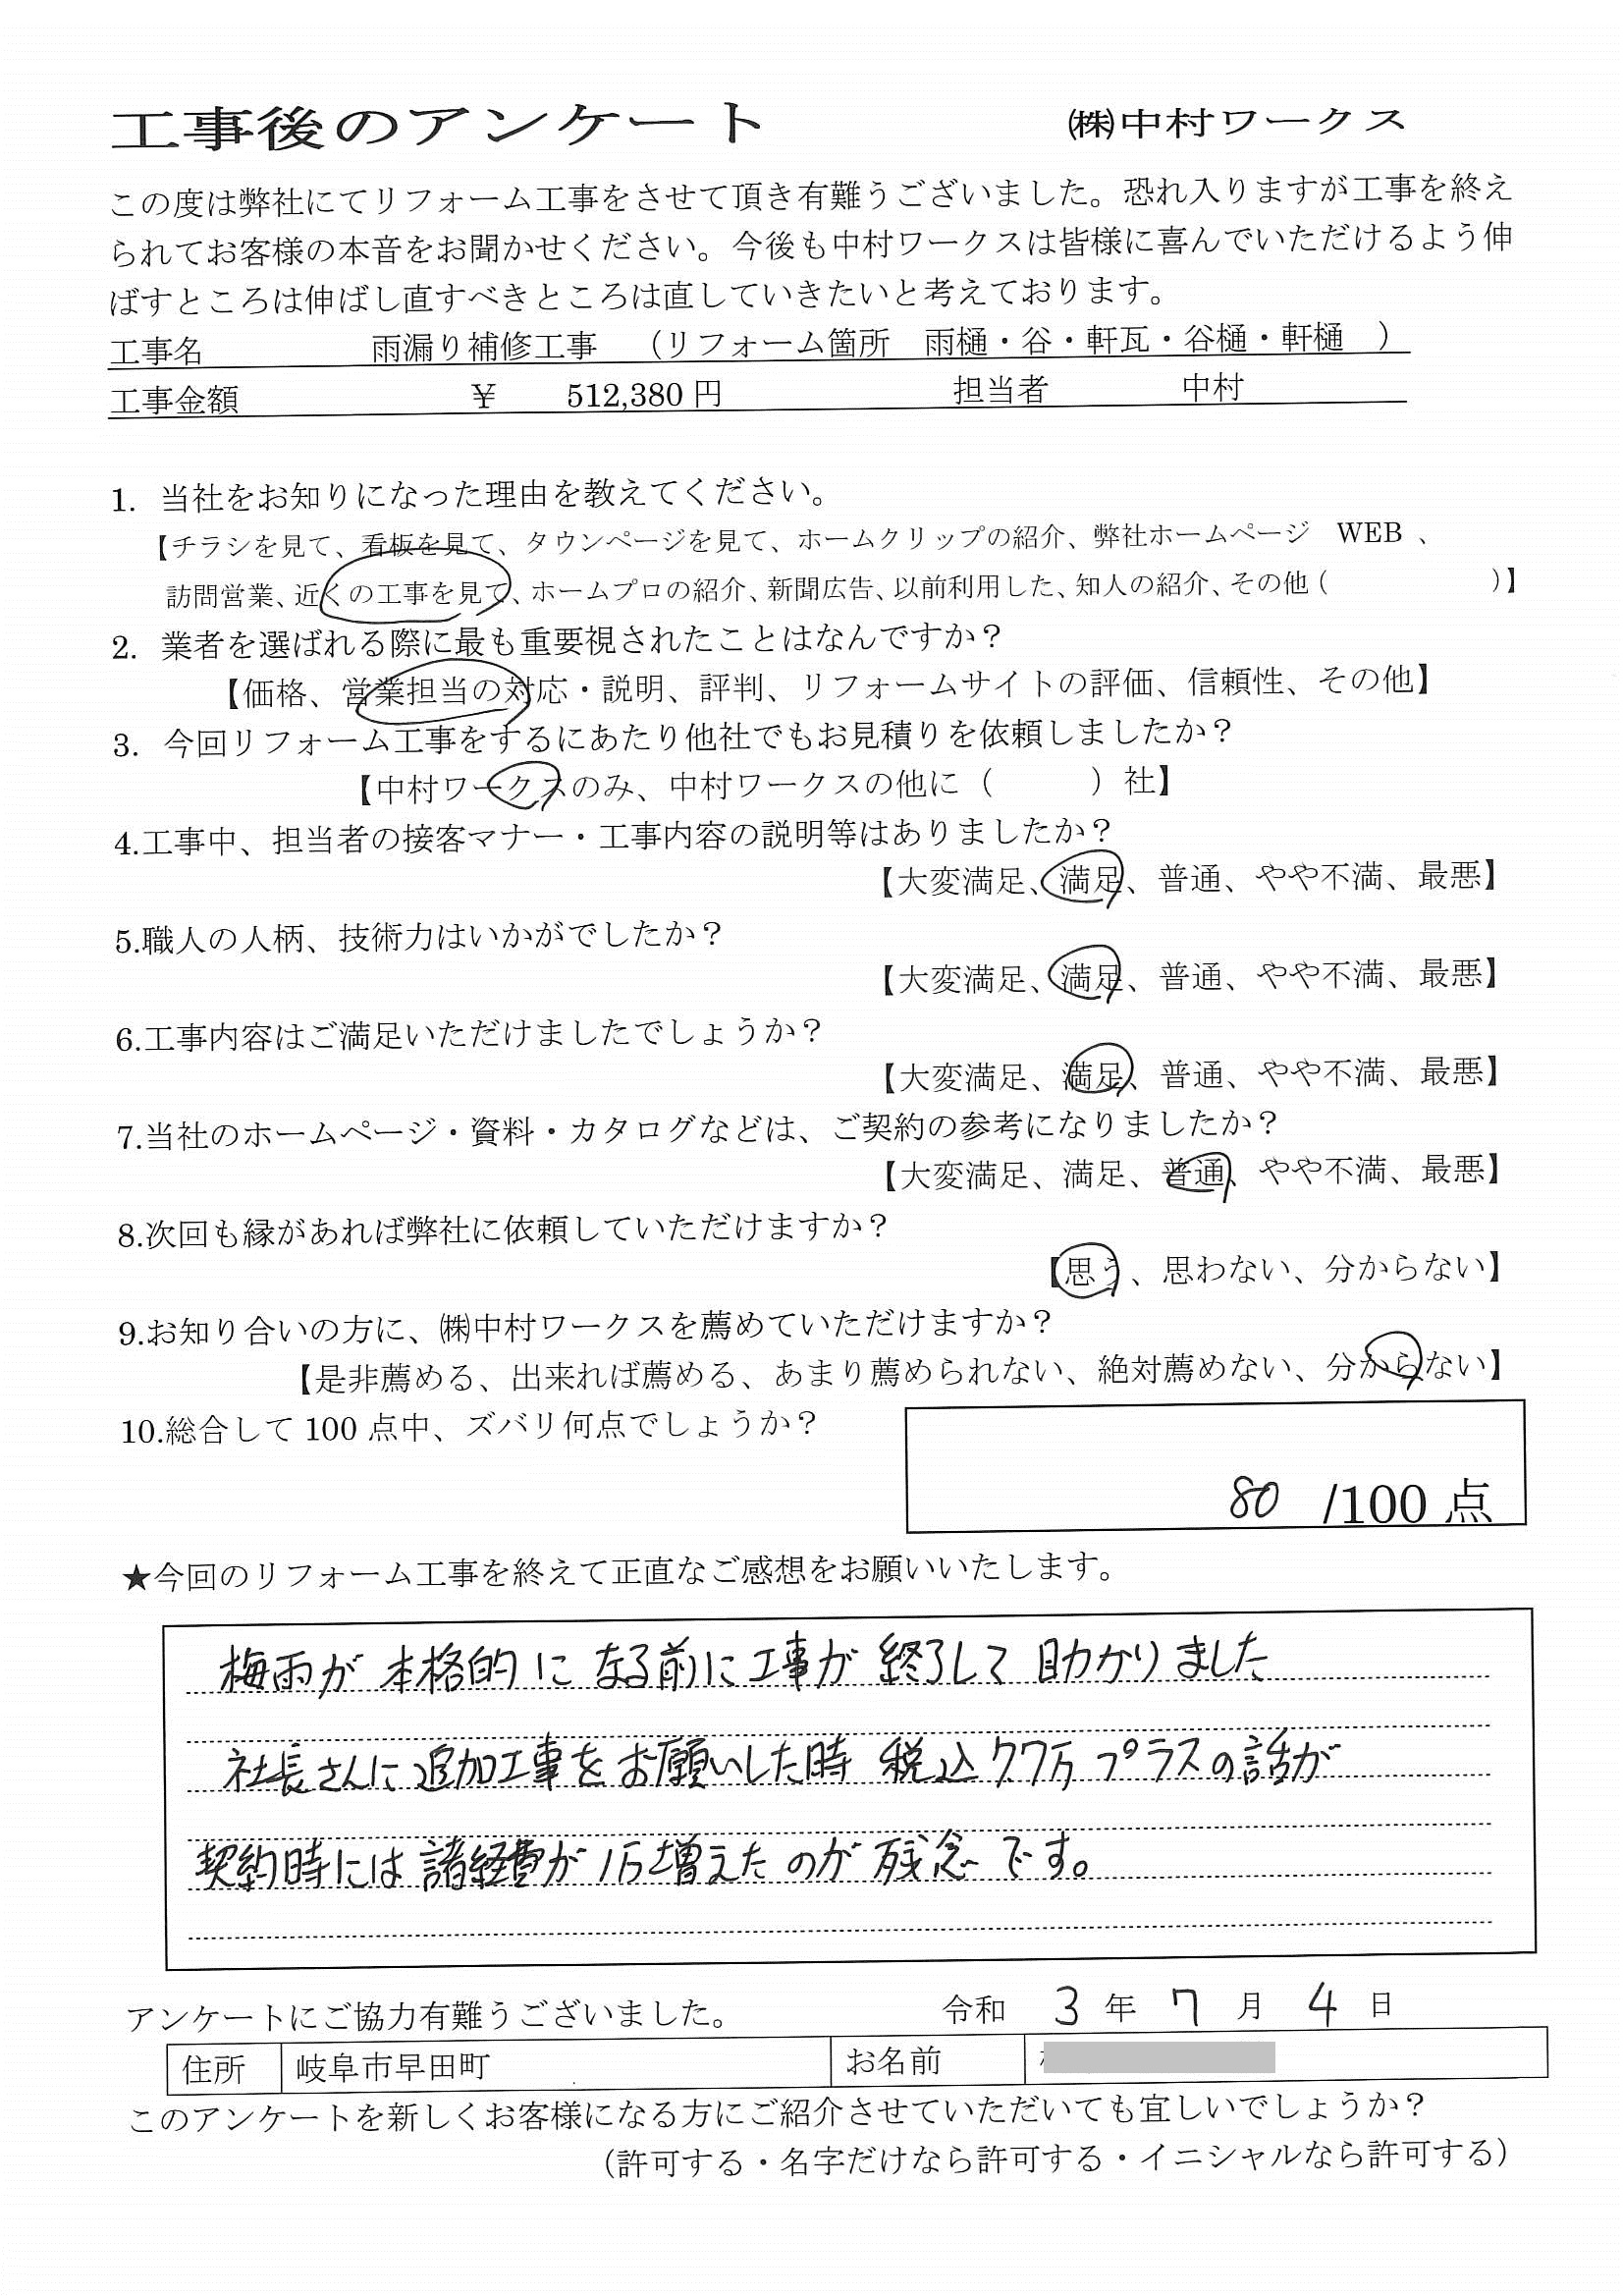 工事後のアンケート ㈱中村ワークス
この度は弊社にてリフォーム工事をさせて頂き有難うございました。恐れ入りますが工事を終え
られてお客様の本音をお聞かせください。今後も中村ワークスは皆様に喜んでいただけるよう伸
ばすところは伸ばし直すべきところは直していきたいと考えております。
工事名 雨漏り補修工事 (リフォーム箇所 雨樋・谷・軒瓦・谷樋・軒樋 )
工事金額 ￥ 512,380円 担当者 中村
1. 当社をお知りになった理由を教えてください。
【チラシを見て、看板を見て、タウンページを見て、ホームクリップの紹介、弊社ホームページ WEB 、
訪問営業、近くの工事を見て、ホームプロの紹介、新聞広告、以前利用した、知人の紹介、その他( )】
2. 業者を選ばれる際に最も重要視されたことはなんですか？
【価格、営業担当の対応・説明、評判、リフォームサイトの評価、信頼性、その他】
3. 今回リフォーム工事をするにあたり他社でもお見積りを依頼しましたか？
【中村ワークスのみ、中村ワークスの他に ( ) 社】
4.工事中、担当者の接客マナー・工事内容の説明等はありましたか？
【大変満足、満足、普通、やや不満、最悪】
5.職人の人柄、技術力はいかがでしたか？
【大変満足、満足、普通、やや不満、最悪】
6.工事内容はご満足いただけましたでしょうか？
【大変満足、満足、普通、やや不満、最悪】
7.当社のホームページ・資料・カタログなどは、ご契約の参考になりましたか？
【大変満足、満足、普通、やや不満、最悪】
8.次回も縁があれば弊社に依頼していただけますか？
【思う、思わない、分からない】
9.お知り合いの方に、㈱中村ワークスを薦めていただけますか？
【是非薦める、出来れば薦める、あまり薦められない、絶対薦めない、分からない】
10.総合して 100 点中、ズバリ何点でしょうか？
80 /100 点
★今回のリフォーム工事を終えて正直なご感想をお願いいたします。
梅雨が本格的になる前に工事が終了して助かりました
社長さんに追加工事をお願いした時 税込7.7万プラスの話が
契約時には諸経費が1万増えたのが残念です。
アンケートにご協力有難うございました。 令和 3 年 7 月 4 日
住所 岐阜市早田町 お名前
このアンケートを新しくお客様になる方にご紹介させていただいても宜しいでしょうか？
(許可する・名字だけなら許可する・イニシャルなら許可する)